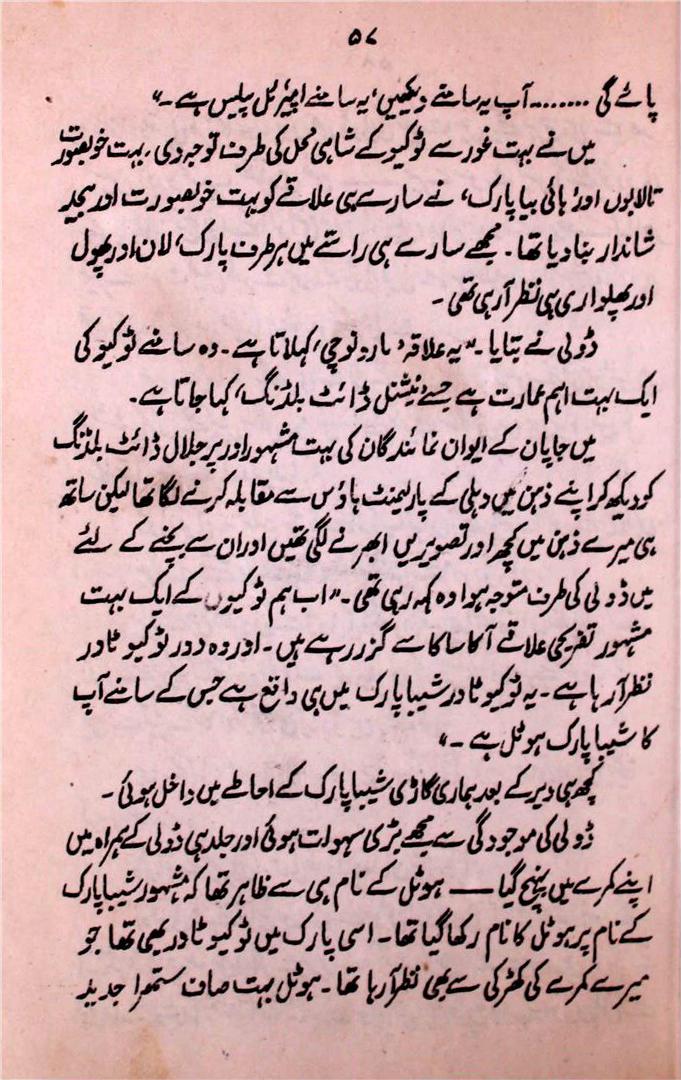 ۵۷
پائے گی ........ آپ یہ سامنے دیکھیں، یہ سامنے امپیرئل پیلیس ہے۔"
میں نے بہت غور سے ٹوکیو کے شاہی محل کی طرف توجہ دی، بہت خوبصورت
تالابوں اور 'ہائی بیا پارک' نے سارے ہی علاقے کو بہت خوبصورت اور بیحد
شاندار بنا دیا تھا۔ مجھے سارے ہی راستے میں ہر طرف پارک، لان اور پھول
اور پھلواری ہی نظر آ رہی تھی۔
ڈولی نے بتایا۔ "یہ علاقہ 'مارونوچی' کہلاتا ہے۔ وہ سامنے ٹوکیو کی
ایک بہت اہم عمارت ہے جسے 'نیشنل ڈائٹ بلڈنگ' کہا جاتا ہے۔
میں جاپان کے ایوان نمائندگان کی بہت مشہور اور پر جلال ڈائٹ بلڈنگ
کو دیکھ کر اپنے ذہن میں دہلی کے پارلیمنٹ ہاؤس سے مقابلہ کرنے لگا تھا لیکن ساتھ
ہی میرے ذہن میں کچھ اور تصویریں ابھرنے لگی تھیں اور ان سے بچنے کے لئے
میں ڈولی کی طرف متوجہ ہوا وہ کہہ رہی تھی۔ "اب ہم ٹوکیوں کے ایک بہت
مشہور تفریحی علاقے آکاساکا سے گزر رہے ہیں۔ اور وہ دور ٹوکیو ٹاور
نظر آ رہا ہے۔ یہ ٹوکیو ٹاور شیبا پارک میں ہی واقع ہے جس کے سامنے آپ
کا شیبا پارک ہوٹل ہے۔"
کچھ ہی دیر کے بعد ہماری گاڑی شیبا پارک کے احاطے میں داخل ہوئی۔
ڈولی کی موجودگی سے مجھے بڑی سہولت ہوئی اور جلد ہی ڈولی کے ہمراہ میں
اپنے کمرے میں پہنچ گیا —— ہوٹل کے نام ہی سے ظاہر تھا کہ مشہور شیبا پارک
کے نام پر ہوٹل کا نام رکھا گیا تھا۔ اسی پارک میں ٹوکیو ٹاور بھی تھا جو
میرے کمرے کی کھڑکی سے بھی نظر آ رہا تھا۔ ہوٹل بہت صاف ستھرا جدید